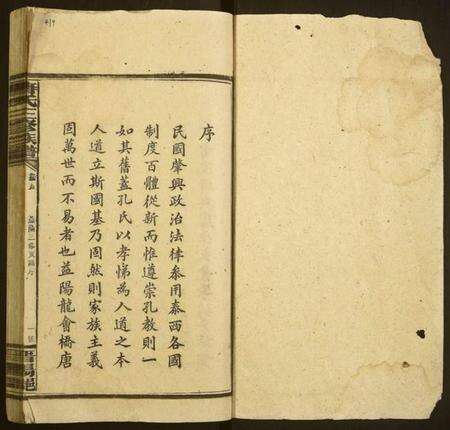 序
民國肇興政治法律泰用泰西各國
制度百體從新而惟遵崇孔教則一
如其舊蓋孔氏以孝悌為人道之本
人道立斯國基乃固然則家族主義
固萬世而不易者也益陽龍會橋唐
氏三修族譜